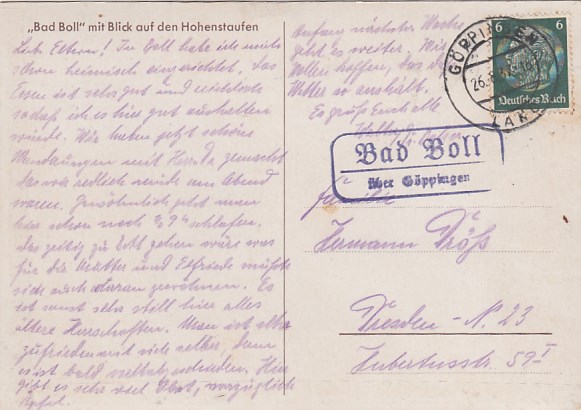 „Bad Boll" mit Blick auf den Hohenstaufen
Lieb. Eltern! In Boll habe ich mich
schon heimisch eingerichtet. Das
Essen ist sehr gut und reichlich
sodaß ich es hier gut aushalten
würde. Wir haben jetzt schöne
Wanderungen mit gemacht
das wir redlich müde am Abend
waren. Gewöhnlich geht man
hier schon nach ½ 9h schlafen.
Das zeitig zu Bett gehen wäre was
für die Mutter und Elfriede müßte
sich auch daran gewöhnen. Es
ist sonst sehr still hier alles
ältere Herrschaften. Man ist aber
zufrieden mit sich selber, denn
es ist bald selbst Hier
gibt es sehr viel Obst, vorzügliche
Äpfel.
Anfang nächster Woche
geht es weiter. Wir
wollen hoffen, das das
Wetter so anhält.
Es grüß Euch alle
GÖPPINGEN
26.
LAND
6 6
Deutsches Reich
Bad Boll
über Göppingen
Familie
Hermann Größ
Dresden-N. 23
Hubertusstr. 59 I